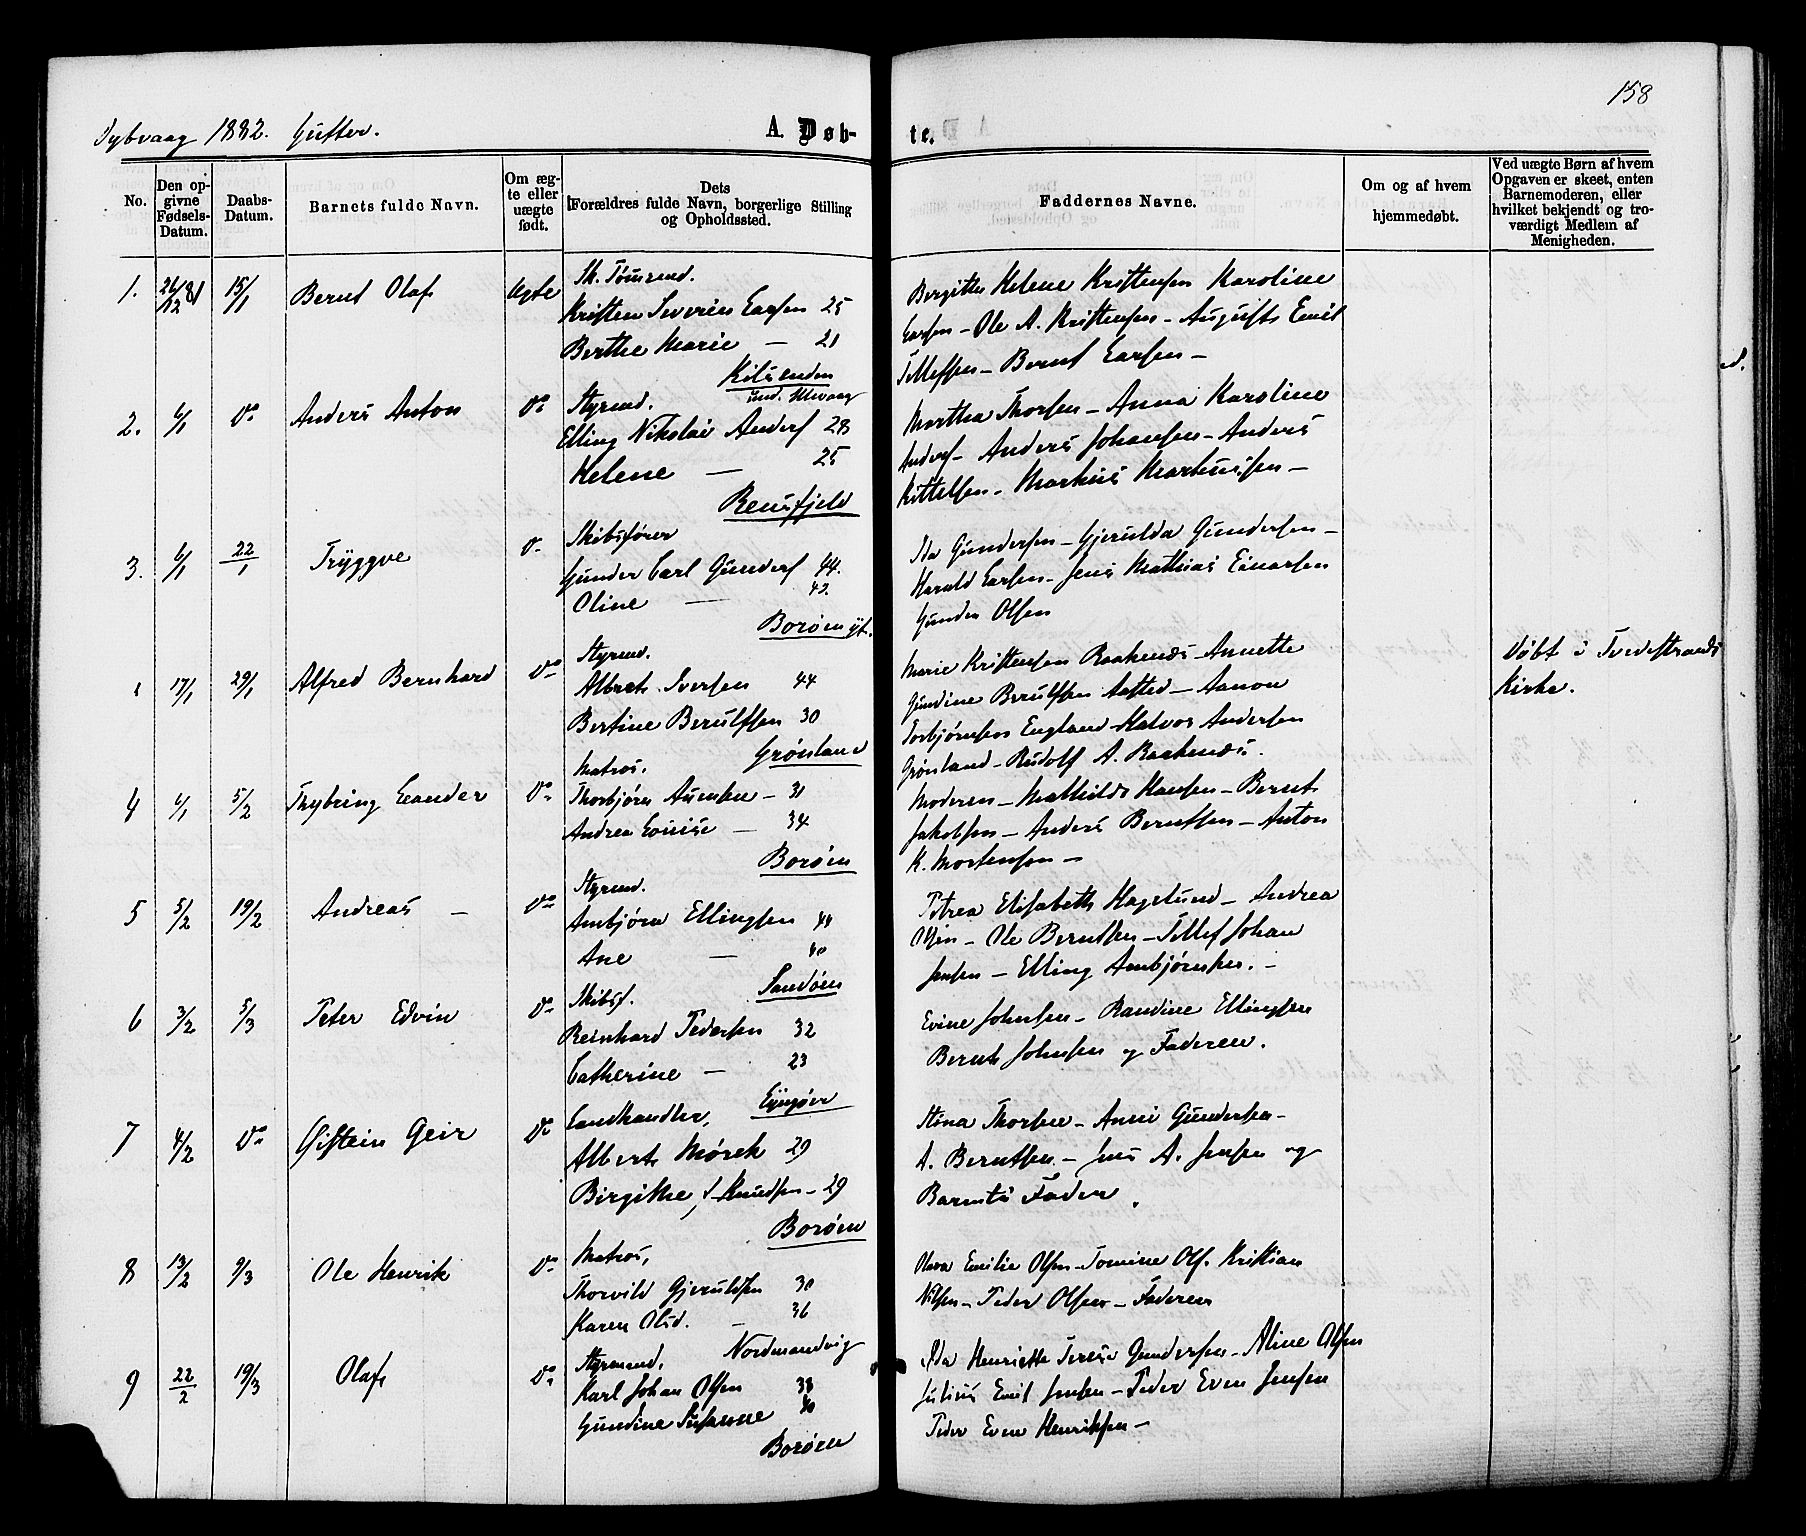 158
Dybvaag 1882. Gutter.
A. Døb-
te.
No.
Den op-
givne
Fødsels-
Datum.
Daabs-
Datum.
Barnets fulde Navn.
Om æg-
te eller
uægte
født.
Dets
Forældres fulde Navn, borgerlige Stilling
og Opholdssted.
Faddernes Navne.
Om og af hvem
hjemmedøbt.
Ved uægte Børn af hvem
Opgaven er skeet, enten
Barnemoderen, eller
hvilket bekjendt og tro-
værdigt Medlem af
Menigheden.
1. 26/12 81 15/1 Bernt Olaf Ægte
Sk. Tømmd.
Kristen Severin Larsen 25
Berthe Marie — 21
Kilsenden
und. Ulevaag
Bergitte Helene Kristensen Karoline
Larsen – Ole A. Kristensen – August Emil
Tellefsen – Bernt Larsen –
2. 6/1 Do Anders Anton Do
Styrmd.
Elling Nikolai Anders 28
Helene — 25
Rensfjeld
Martha Thorsen – Anna Karoline
Anders – Anders Johansen – Anders
Kittelsen – Markus Markussen –
3. 6/1 22/1 Tryggve Do
Skibsfører
Gunder Carl Gunders 44.
Oline — 42
Borøen yt.
Ida Gundersen – Gjerulda Gundersen –
Harald Larsen – Jens Mathias Einarsen
Gunder Olsen
17/1 29/1 Alfred Bernhard Do
Styrmd.
Albert Iversen 44
Bertine Berulfsen 30
Grønland
Marie Kristensen Raakenæs – Annette
Gundine Berulfsen Aasted – Aanon
Torbjørnsen England – Halvor Andersen
Grønland – Rudolf A. Raakenæs.
Døbt i Tvedestrands
Kirke.
4 6/1 5/2 Thybring Leander Do
Matros,
Thorbjørn Aumsen – 31
Andrea Louise — 34
Borøen
Moderen – Mathilde Hansen – Bernt
Jakobsen – Anders Berntsen – Anton
K. Mortensen –
5 5/2 19/2 Andreas – Do
Styrmd.
Ambjørn Ellingsen 44
Ane — 40
Sandøen
Petrea Elisabeth Hagelund – Andrea
– Ole Berntsen – Tellef Johan
Jensen – Elling Ambjørnsen. –
6 3/2 5/3 Peter Edvin Do
Skibsf.
Reinhard Pedersen 32
Catherine – 23
Lyngør
Evine Johnsen – Randine Ellingsen
Bernt Johnsen og Faderen.
7 4/2 Do Øistein Geir Do
Landhandler,
Albert Mørch 29
Birgithe, f. Knudsen – 29
Borøen
Stina Thorsen – Anni Gundersen –
A. Berntsen – Jens A. Jensen og
Barnets Fader.
8 13/2 9/3 Ole Henrik Do
Matros,
Thorvild Gjeruldsen 30
Karen Olsd. – 36
Nordmandvig
Olava Emilie Olsen – Tomine Ols. Kristian
Nilsen – Peder Olsen – Faderen
9 22/2 19/3 Olaf, Do
Styrmand,
Karl Johan Olsen 38
Gundine Susanne 40
Borøen
Ida Henriette Terese Gundersen – Aline Olsen
Julius Emil Jensen – Peder Even Jensen
Peder Even Henriksen –